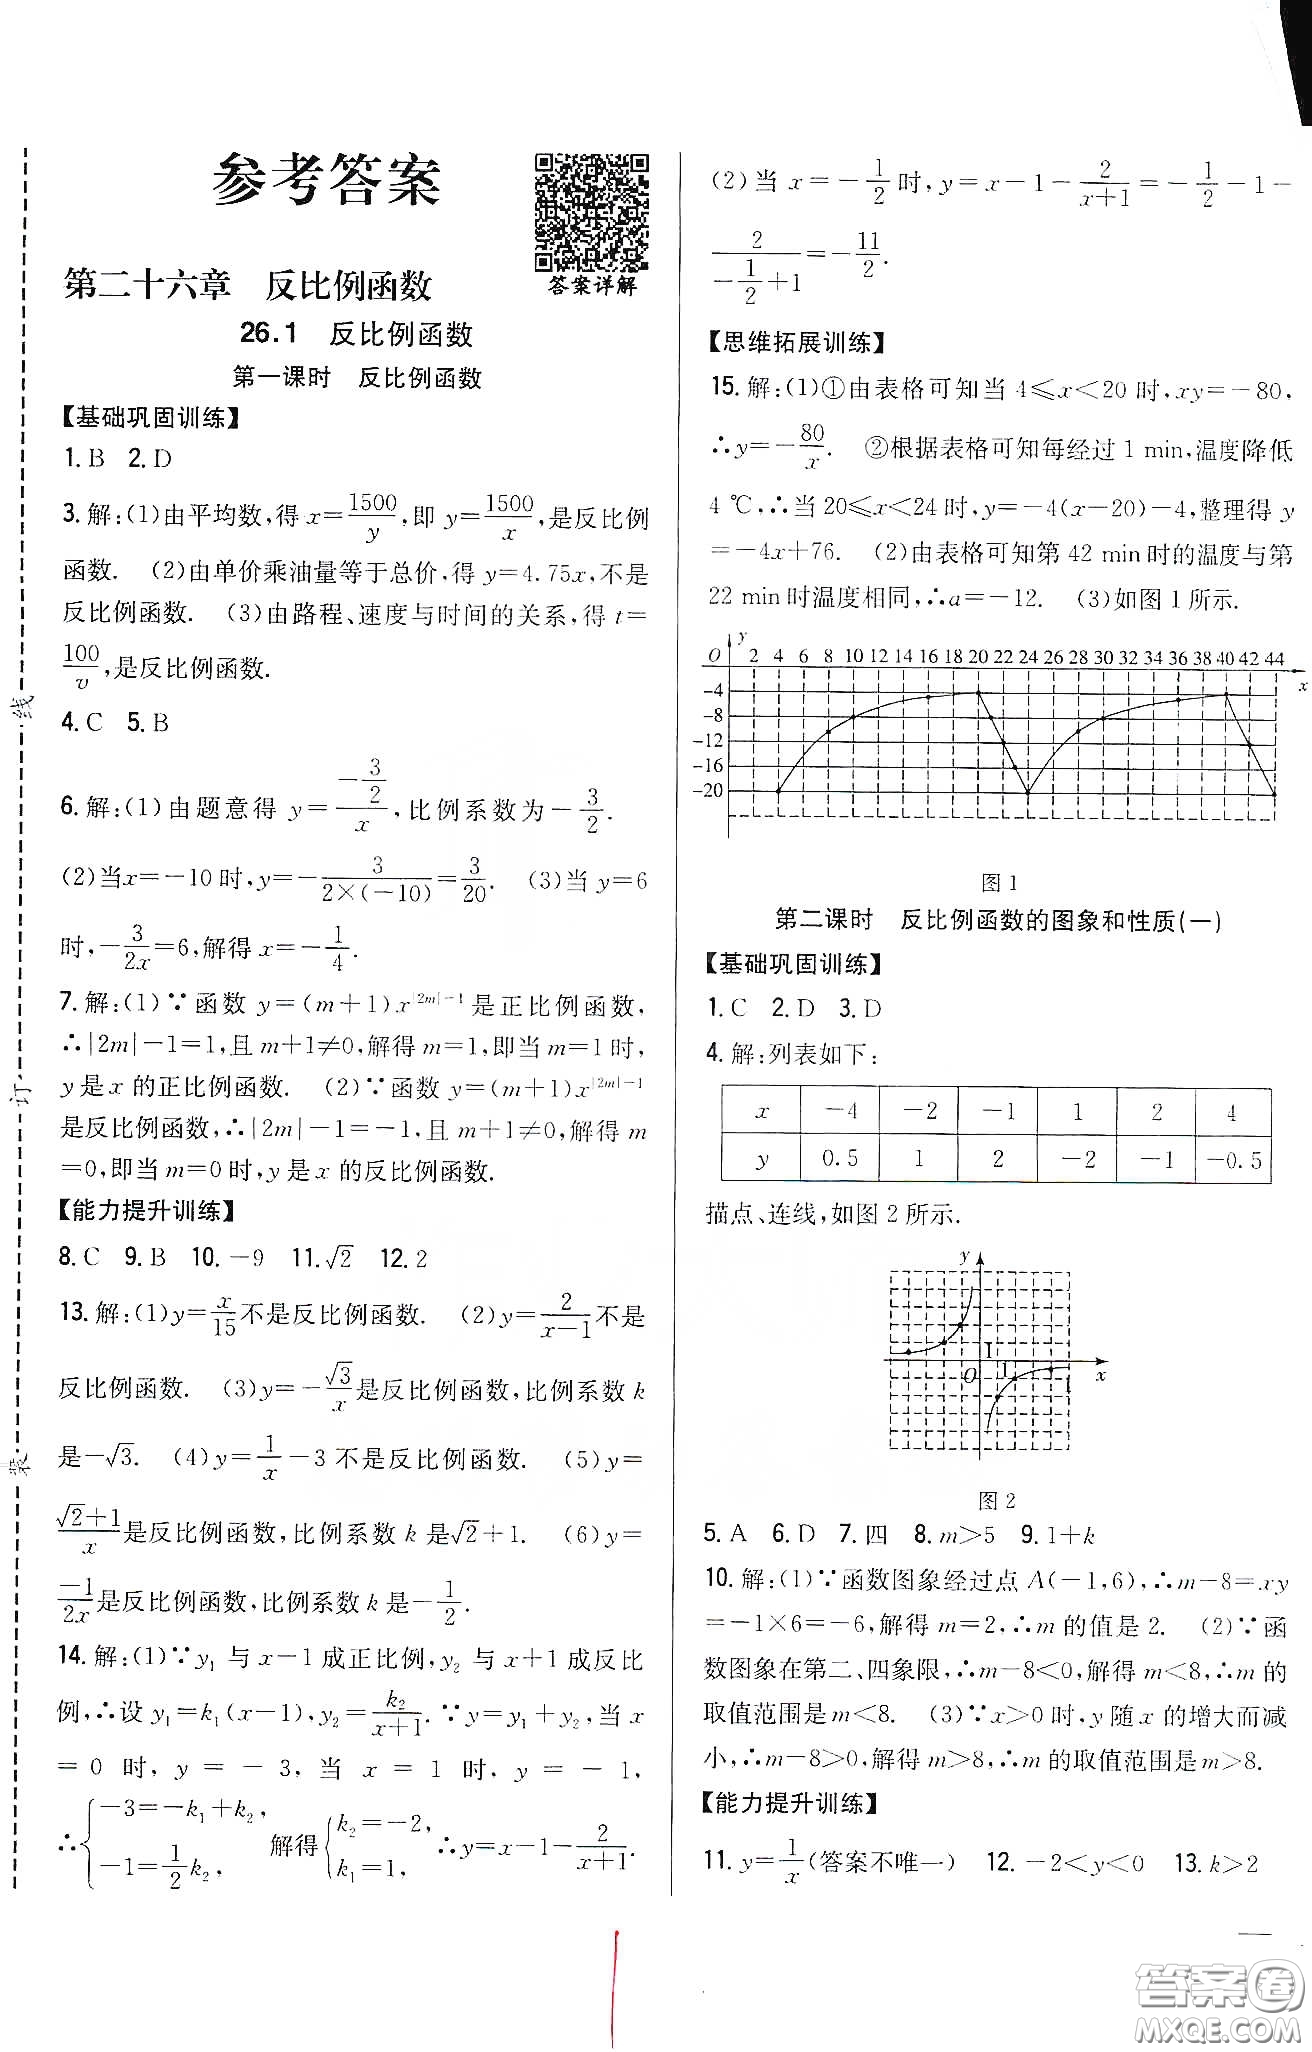 参考答案
答案详解
第二十六章 反比例函数
26.1 反比例函数
第一课时 反比例函数
【基础巩固训练】
1.B 2.D
3.解:(1)由平均数,得 x=1500/y,即 y=1500/x,是反比例
函数. (2)由单价乘油量等于总价,得 y=4.75x,不是
反比例函数. (3)由路程、速度与时间的关系,得 t=
100/v,是反比例函数.
4.C 5.B
6.解:(1)由题意得 y=(-3/2)/x,比例系数为-3/2.
(2)当x=-10 时,y=-3/(2×(-10))=3/20. (3)当 y=6
时,-3/(2x)=6,解得 x=-1/4.
7.解:(1)∵函数 y=(m+1)x^(|2m|-1)是正比例函数,
∴|2m|-1=1,且 m+1≠0,解得 m=1,即当 m=1 时,
y 是 x 的正比例函数. (2)∵函数 y=(m+1)x^(|2m|-1)
是反比例函数,∴|2m|-1=-1,且 m+1≠0,解得 m
=0,即当 m=0 时,y 是 x 的反比例函数.
【能力提升训练】
8.C 9.B 10.-9 11.√2 12.2
13.解:(1)y=x/15不是反比例函数. (2)y=2/(x-1)不是
反比例函数. (3)y=-√3/x是反比例函数,比例系数 k
是-√3. (4)y=1/x-3 不是反比例函数. (5)y=
(√2+1)/x是反比例函数,比例系数 k 是√2+1. (6)y=
-1/(2x)是反比例函数,比例系数 k 是-1/2.
14.解:(1)∵y₁ 与 x-1 成正比例,y₂ 与 x+1 成反比
例,∴设 y₁=k₁(x-1),y₂=k₂/(x+1).∵y=y₁+y₂,当 x
=0 时,y=-3,当 x=1 时,y=-1,
∴{-3=-k₁+k₂, -1=1/2 k₂, 解得{k₂=-2, k₁=1, ∴y=x-1-2/(x+1).
(2)当 x=-1/2时,y=x-1-2/(x+1)=-1/2-1-
2/(-1/2+1)=-11/2.
【思维拓展训练】
15.解:(1)①由表格可知当 4≤x<20 时,xy=-80,
∴y=-80/x. ②根据表格可知每经过 1 min,温度降低
4 ℃,∴当 20≤x<24 时,y=-4(x-20)-4,整理得 y
=-4x+76. (2)由表格可知第 42 min 时的温度与第
22 min 时温度相同,∴a=-12. (3)如图 1 所示.
y
O 2 4 6 8 10 12 14 16 18 20 22 24 26 28 30 32 34 36 38 40 42 44
x
-4
-8
-12
-16
-20
图 1
第二课时 反比例函数的图象和性质(一)
【基础巩固训练】
1.C 2.D 3.D
4.解:列表如下:
x -4 -2 -1 1 2 4
y 0.5 1 2 -2 -1 -0.5
描点、连线,如图 2 所示.
y
1
O 1 x
图 2
5.A 6.D 7.四 8.m>5 9.1+k
10.解:(1)∵函数图象经过点 A(-1,6),∴m-8=xy
=-1×6=-6,解得 m=2,∴m 的值是 2. (2)∵函
数图象在第二、四象限,∴m-8<0,解得 m<8,∴m 的
取值范围是 m<8. (3)∵x>0 时,y 随 x 的增大而减
小,∴m-8>0,解得 m>8,∴m 的取值范围是 m>8.
【能力提升训练】
11.y=1/x(答案不唯一) 12.-2<y<0 13.k>2
线
订
装
答案卷
MXQE.COM